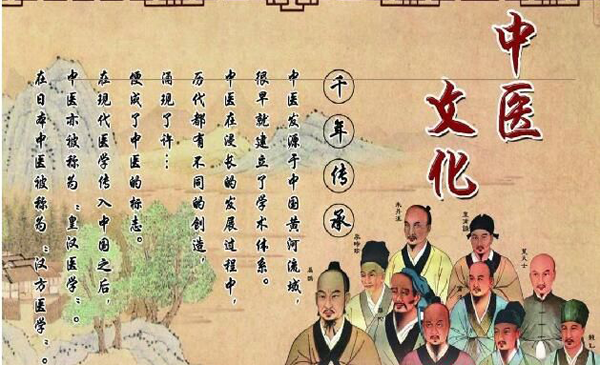 中医
文化
千年传承
中医发源于中国黄河流域，
很早就建立了学术体系。
中医在漫长的发展过程中，
历代都有不同的创造，
涌现了许…
便成了中医的标志。
在现代医学传入中国之后，
中医亦被称为“皇汉医学”。
在日本中医被称为“汉方医学”。
朱丹溪
李時珍